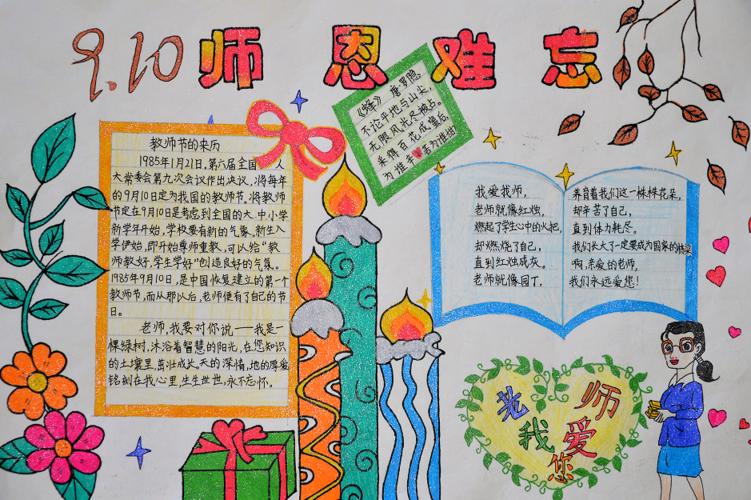 9.10 师恩难忘
教师节的来历
1985年1月21日,第六届全国人
大常委会第九次会议作出决议,将每
年的9月10日定为我国的教师节,将教师
节定在9月10日是考虑到全国的大、中、小学
新学年开始,学校要有新的气象,新生入
学伊始,即开始尊师重教,可以给"教
师教好,学生学好"创造良好的气象。
1985年9月10日,是中国恢复建立的第一个
教师节,而从那以后,老师便有了自己的节
日。
老师,我要对你说——我是一
棵绿树,沐浴着智慧的阳光,在您知识
的土壤里,茁壮成长,天的深情,地的厚爱
铭刻在我心里,生生世世,永不忘怀。
《蜂》 唐 罗隐
不论平地与山尖,
无限风光尽被占。
采得百花成蜜后,
为谁辛苦为谁甜
我爱我师,
老师就像红烛,
燃起了学生心中的火把,
却燃烧了自己,
直到红烛成灰。
老师就像园丁,
养育着我们这一株株花朵,
却辛苦了自己,
直到体力耗尽。
我们长大了一定要成为国家的栋梁
啊,亲爱的老师,
我们永远爱您!
老师
我爱您